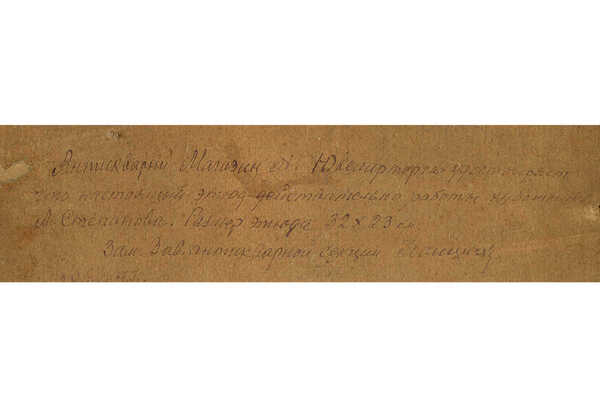 Антикварный Магазин №1 Ювелирторга удостоверяет
что настоящий этюд действительно работы художника
А. Степанова. Размер этюда 32 x 23 см.
Зам. Зав. антикварной секции